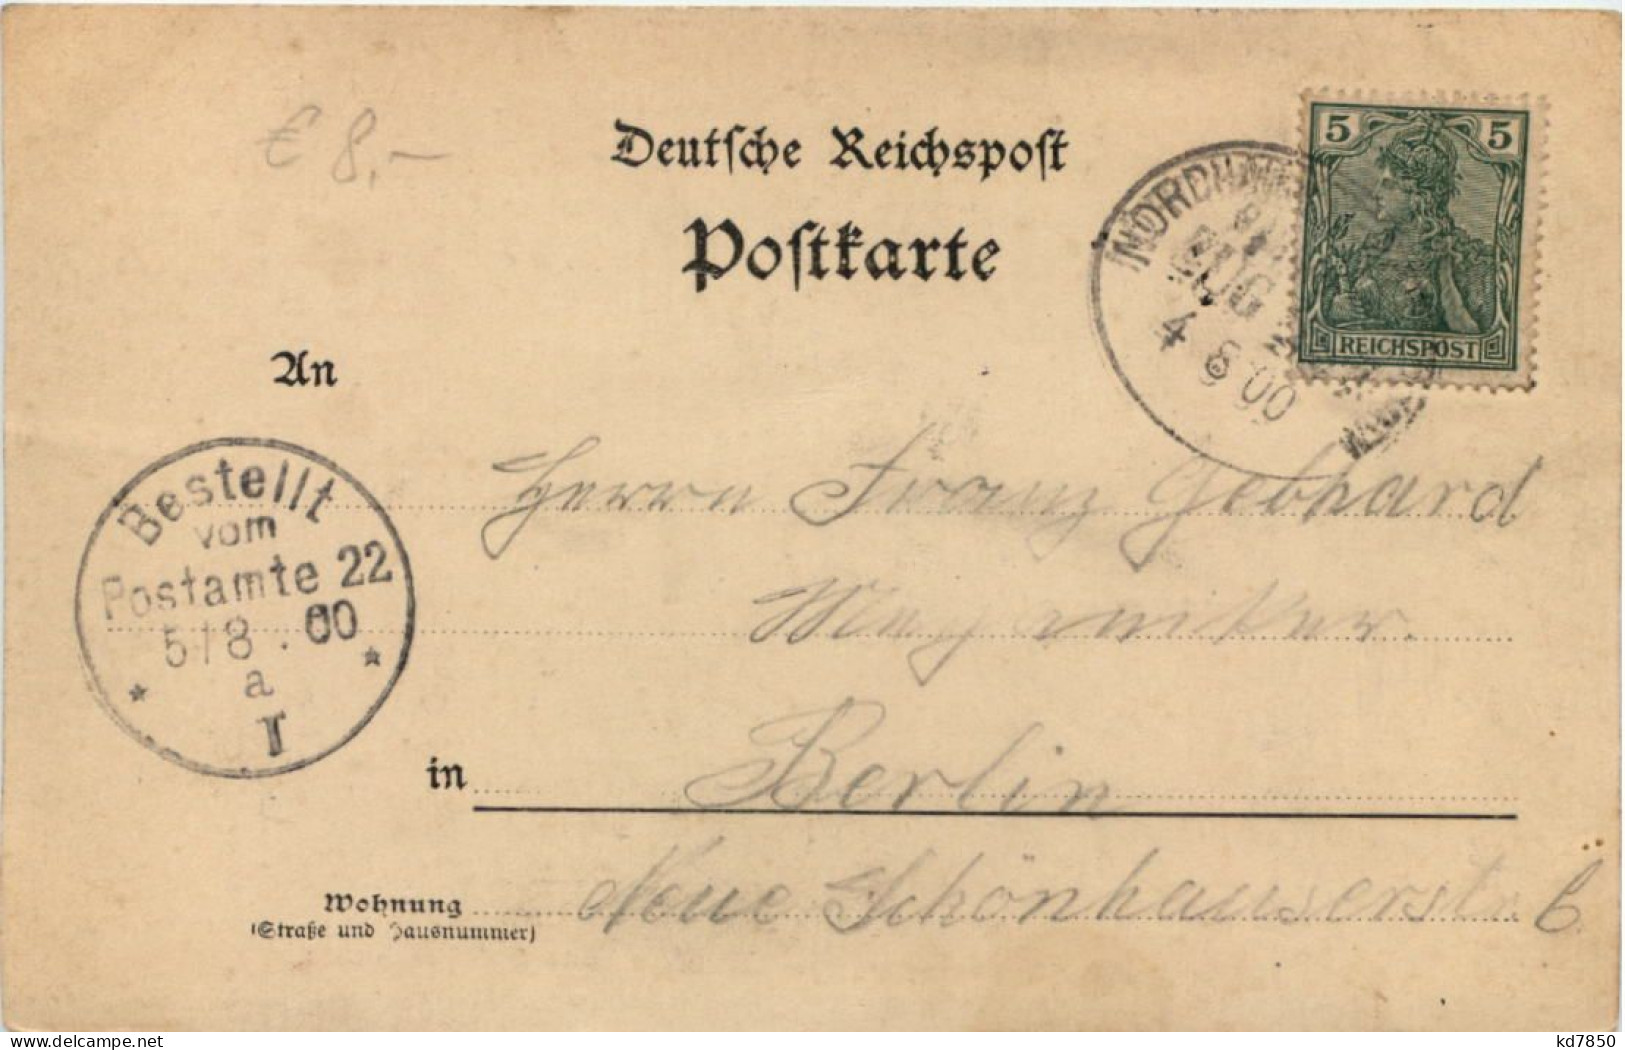 € 8,-
Deutsche Reichspost
Postkarte
5 5
REICHSPOST
BAHN
ZUG
4 8 00
An
Herrn Franz Gebhard
Berlin
in
Neue Schönhauserstr. 6.
Wohnung
(Straße und Hausnummer)
Bestellt
vom
Postamte 22
5/8 . 00
a
I
delcampe.net
kd7850